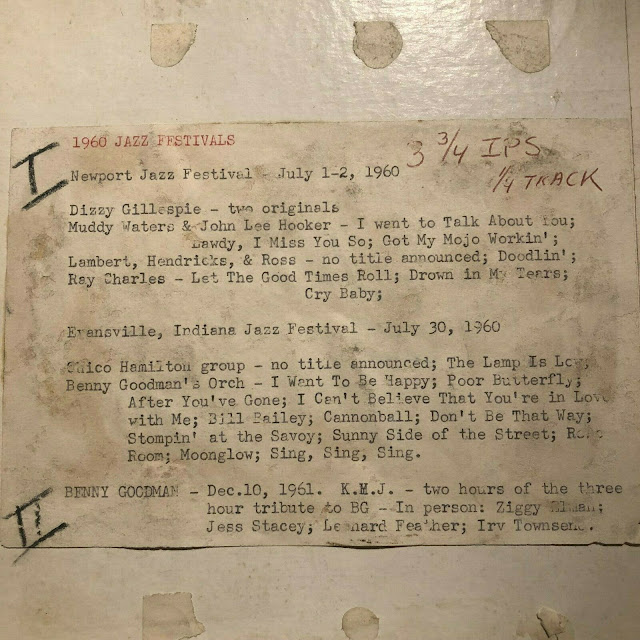 1960 JAZZ FESTIVALS
3 3/4 IPS
1/4 TRACK
I
Newport Jazz Festival - July 1-2, 1960
Dizzy Gillespie - two originals
Muddy Waters & John Lee Hooker - I want to Talk About You;
Lawdy, I Miss You So; Got My Mojo Workin';
Lambert, Hendricks, & Ross - no title announced; Doodlin';
Ray Charles - Let The Good Times Roll; Drown in My Tears;
Cry Baby;
Evansville, Indiana Jazz Festival - July 30, 1960
Chico Hamilton group - no title announced; The Lamp Is Low;
Benny Goodman's Orch - I Want To Be Happy; Poor Butterfly;
After You've Gone; I Can't Believe That You're in Love
with Me; Bill Bailey; Cannonball; Don't Be That Way;
Stompin' at the Savoy; Sunny Side of the Street;
Room; Moonglow; Sing, Sing, Sing.
II
BENNY GOODMAN - Dec.10, 1961. K.M.J. - two hours of the three
hour tribute to BG - In person: Ziggy Elman;
Jess Stacey; Leonard Feather; Irv Townsend.